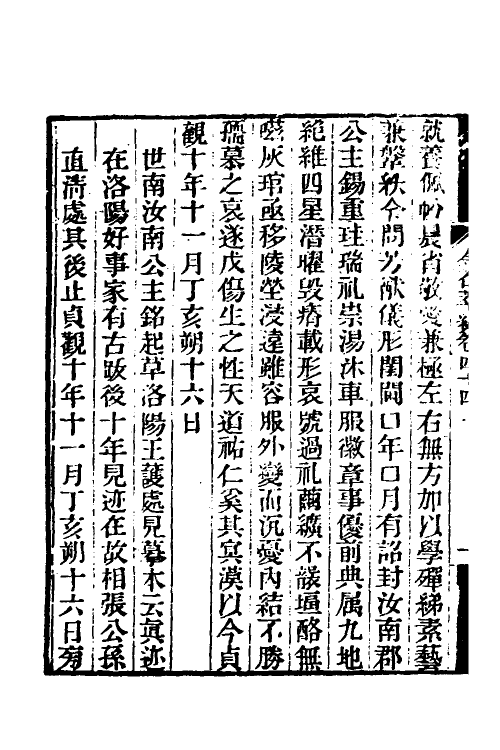 就養佩帉晨省敬愛兼極左右無方加以學殫綈素藝
兼鞶紩令問芳猷儀形閨閫口年口月有詔封汝南郡
公主錫重珪瑞礼崇湯沐車服徽章事優前典属九地
絶維四星潛曜毀瘠載形哀號過礼繭纊不襲塩酪無
嗞灰琯亟移陵塋浸遠雖容服外變而沉憂內結不勝
孺慕之哀遂戊傷生之性天道祐仁奚其冥漠以今貞
觀十年十一月丁亥朔十六日
世南汝南公主銘起草洛陽王護處見摹本云真迹
在洛陽好事家有古跋後十年見迹在故相張公孫
直清處其後止貞觀十年十一月丁亥朔十六日旁